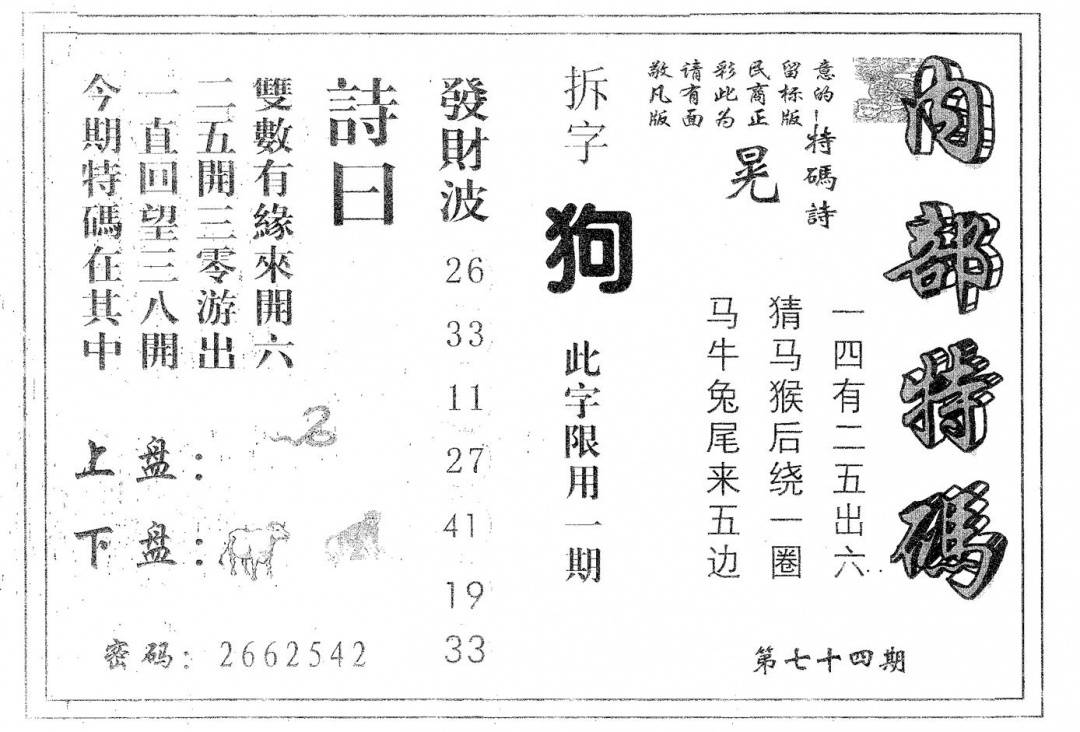 内部特碼
意的!
留标版
民商正
彩此为
请有面
敬凡版
特碼詩
晃
一四有二五出六
猜马猴后绕一圈
马牛兔尾来五边
第七十四期
拆字
狗
此字限用一期
發財波
26
33
11
27
41
19
33
詩曰
雙數有緣來開六
二五開三零游出
一直回望三八開
今期特碼在其中
上盘：
下盘：
密码：2662542